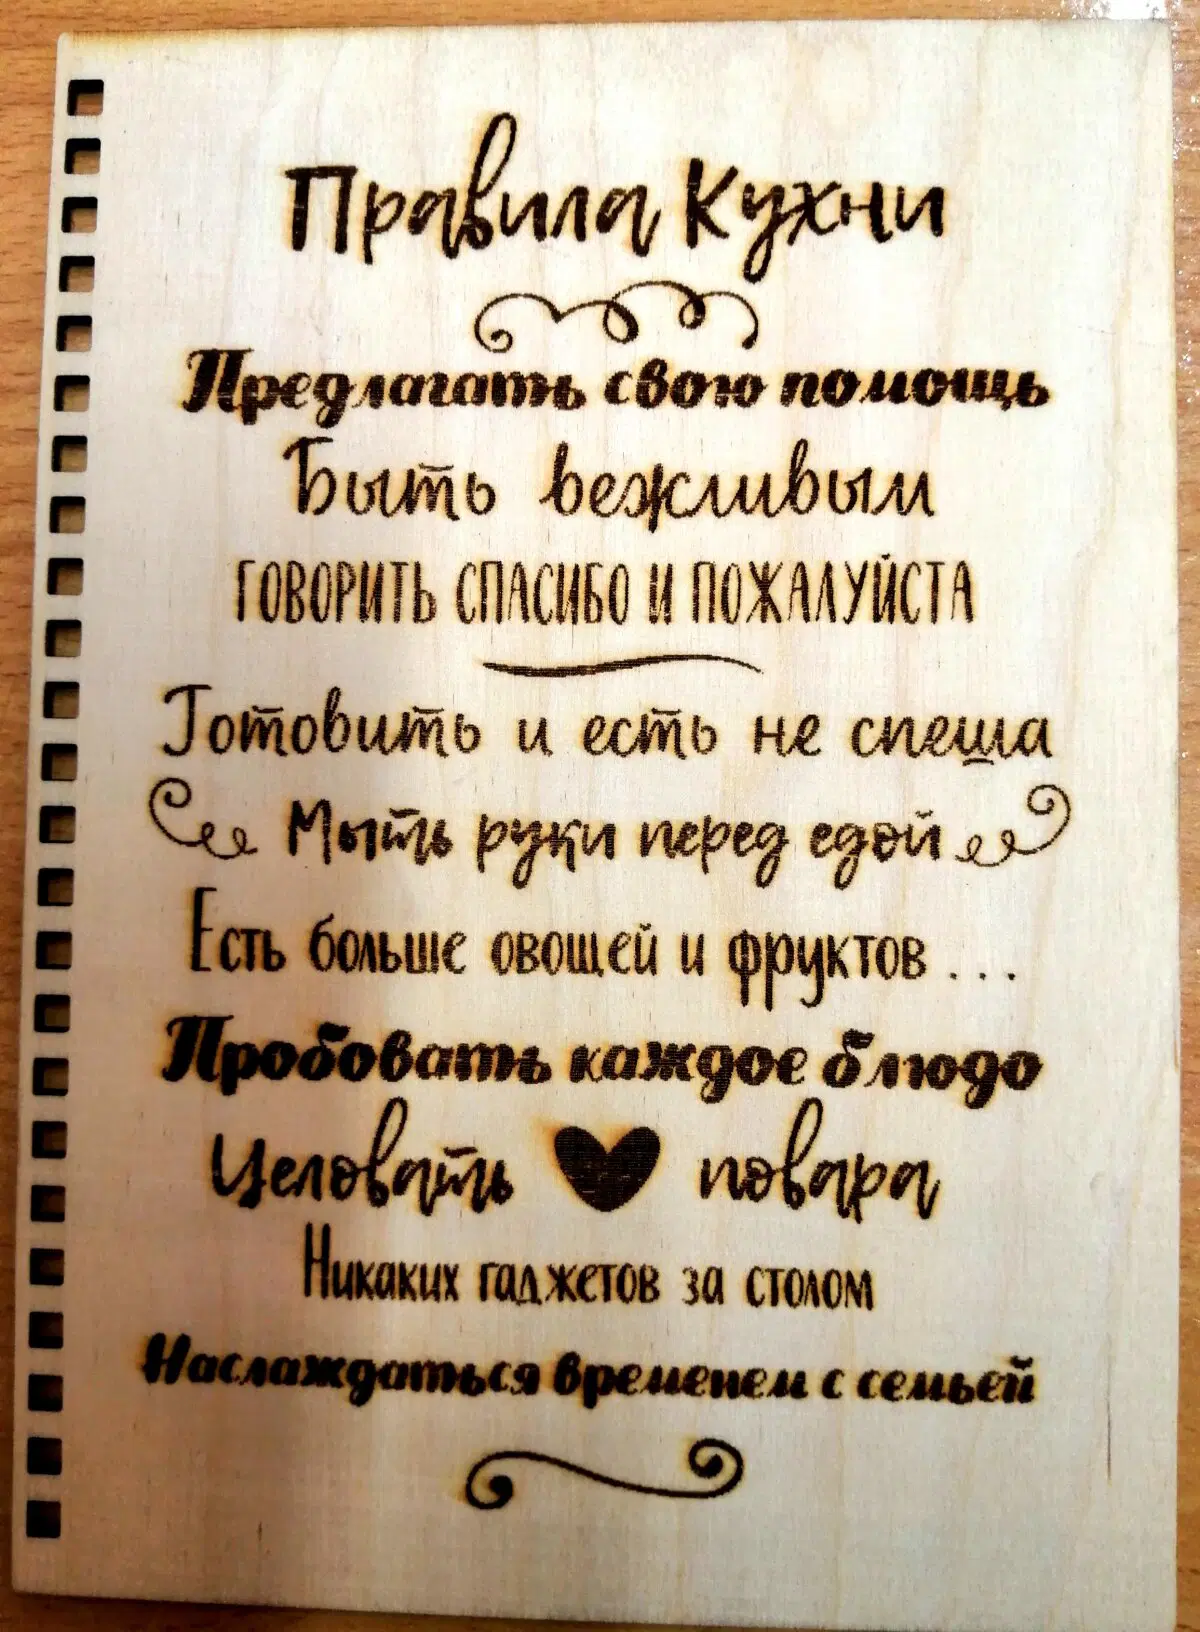 Правила Кухни
Предлагать свою помощь
Быть вежливым
ГОВОРИТЬ СПАСИБО И ПОЖАЛУЙСТА
Готовить и есть не спеша
Мыть руки перед едой
Есть больше овощей и фруктов ...
Пробовать каждое блюдо
Целовать повара
Никаких гаджетов за столом
Наслаждаться временем с семьей